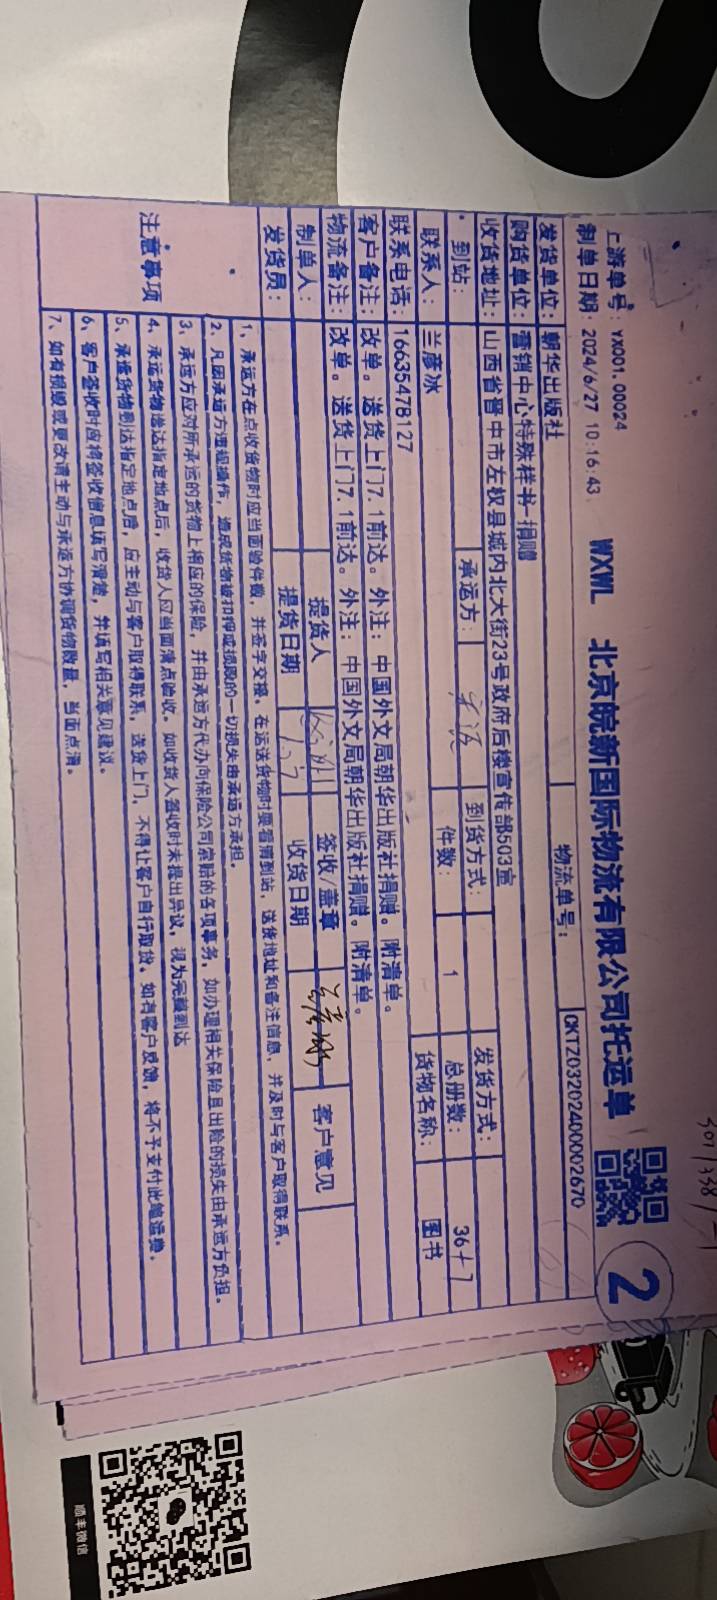 上游单号：YX001.00024
制单日期 2024/6/27 10:16:43
WXWL 北京皖新国际物流有限公司托运单
2
物流单号：CKTZ03202400002670
发货单位：朝华出版社
购货单位：营销中心特殊样书-捐赠
收货地址：山西省晋中市左权县城内北大街23号政府后楼宣传部503室
到站： 承运方： 到货方式： 发货方式：
联系人：兰彦冰 件数：1 总册数：36+7
联系电话：16635478127 货物名称：图书
客户备注：改单。送货上门7.1前达。外注：中国外文局朝华出版社捐赠。附清单。
物流备注：改单。送货上门7.1前达。外注：中国外文局朝华出版社捐赠。附清单。
制单人： 提货人 签收/盖章 客户意见
发货员： 提货日期 收货日期
注意事项
1、承运方在点收货物时应当面验件数，并签字交接。在运送货物时要看清到站，送货地址和备注信息，并及时与客户取得联系。
2、凡因承运方违规操作，造成货物被扣押或损毁的一切损失由承运方承担。
3、承运方应对所承运的货物上相应的保险，并由承运方代办向保险公司索赔的各项事务，如办理相关保险且出险的损失由承运方负担。
4、承运货物送达指定地点后，收货人应当面清点验收。如收货人签收时未提出异议，视为完整到达
5、承运货物到达指定地点后，应主动与客户取得联系，送货上门，不得让客户自行取货。如有客户反馈，将不予支付此笔运费。
6、客户签收时应将签收信息填写清楚，并填写相关意见建议。
7、如有损毁或更改请主动与承运方协调货物数量，当面点清。
顺丰微信